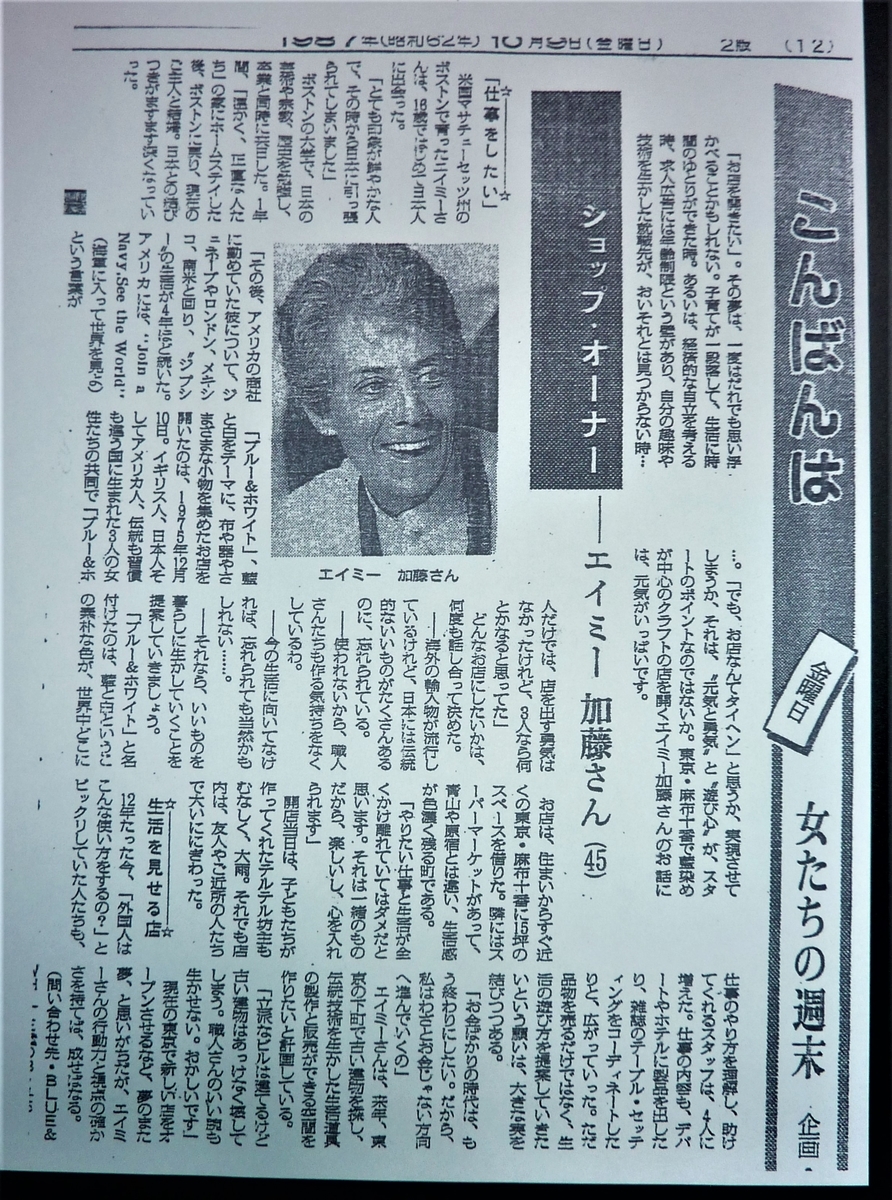 1987年(昭和62年)10月9日(金曜日)
2版
(12)
こんばんは
金曜日
女たちの週末
企画・
「お店を開きたい」。その夢は、一度はだれでも思い浮
かべることかもしれない。子育てが一段落して、生活に時
間のゆとりができた時。あるいは、経済的な自立を考える
時、求人広告には年齢制限という壁があり、自分の趣味や
技術を生かした就職先が、おいそれとは見つからない時…
…。「でも、お店なんてタイヘン」と思うか、実現させて
しまうか、それは、“元気と勇気”と“遊び心”が、スタ
ートのポイントなのではないか。東京・麻布十番で藍染め
が中心のクラフトの店を開くエイミー加藤さんのお話に
は、元気がいっぱいです。
ショップ・オーナー
――エイミー 加藤さん(45)
☆「仕事をしたい」☆
米国マサチューセッツ州の
ボストンで育ったエイミーさ
んは、18歳ではじめて日本人
に出会った。
「とても印象が鮮やかな人
で、その時から日本に引っ張
られてしまいました」
ボストンの大学で、日本の
美術や宗教、歴史を勉強し、
卒業と同時に来日した。1年
間、「温かく、正直な人た
ち」の家にホームステイした
後、ボストンに戻り、現在の
ご主人と結婚。日本との結び
つきがますます深くなってい
った。
「その後、アメリカの商社
に勤めていた彼について、ジ
ュネーブやロンドン、メキシ
コ、南米と回り、“ジプシ
ー”の生活が4年ほど続いた。
アメリカには、“Join a
Navy.See the World”
(海軍に入って世界を見よう)
という言葉が
エイミー 加藤さん
「ブルー&ホワイト」、藍
と白をテーマに、布や器やさ
まざまな小物を集めたお店を
開いたのは、1975年12月
10日。イギリス人、日本人そ
してアメリカ人、伝統も習慣
も違う国に生まれた3人の女
性たちの共同で「ブルー&ホ
人だけでは、店を出す勇気は
なかったけれど、3人なら何
とかなると思ってた」
どんなお店にしたいかは、
何度も話し合って決めた。
――海外の輸入物が流行し
ているけれど、日本には伝統
的ないいものがたくさんある
のに、忘れられている。
――使われないから、職人
さんたちも作る気持ちをなく
しているわ。
――今の生活に向いてなけ
れば、忘れられても当然かも
しれない……。
――それなら、いいものを
暮らしに生かしていくことを
提案していきましょう。
「ブルー&ホワイト」と名
付けたのは、藍と白というこ
の素朴な色が、世界中どこに
お店は、住まいからすぐ近
くの東京・麻布十番に15坪の
スペースを借りた。隣にはス
ーパーマーケットがあって、
青山や原宿とは違い、生活感
が色濃く残る町である。
「やりたい仕事と生活が全
くかけ離れていてはダメだと
思います。それは一緒のもの
だから、楽しいし、心を入れ
られます」
開店当日は、子どもたちが
作ってくれたテルテル坊主も
むなしく、大雨。それでも店
内は、友人やご近所の人たち
で大いににぎわった。
☆生活を見せる店☆
12年たった今、「外国人は
こんな使い方をするの?」と
ビックリしていた人たちも、
仕事のやり方を理解し、助け
てくれるスタッフは、4人に
増えた。仕事の内容も、デパ
ートやホテルに製品を出した
り、雑誌のテーブル・セッテ
ィングをコーディネートした
りと、広がっていった。ただ
品物を売るだけではなく、生
活の遊び方を提案していきた
いという願いは、大きな実を
結びつつある。
「お金ばかりの時代は、も
う終わりにしたい。だから、
私はわざとお金じゃない方向
へ進んでいくの」
エイミーさんは、来年、東
京の下町で古い建物を探し、
伝統技術を生かした生活道具
の製作と販売ができる空間を
作りたいと計画している。
「立派なビルは建てるけど
古い建物はあっけなく壊して
しまう。職人さんのいい腕も
生かせない。おかしいです」
現在の東京で新しい店をオ
ープンさせるなど、夢のまた
夢、と思いがちだが、エイミ
ーさんの行動力と視点の確か
さを持てば、成せばなる。
(問い合わせ先・BLUE&